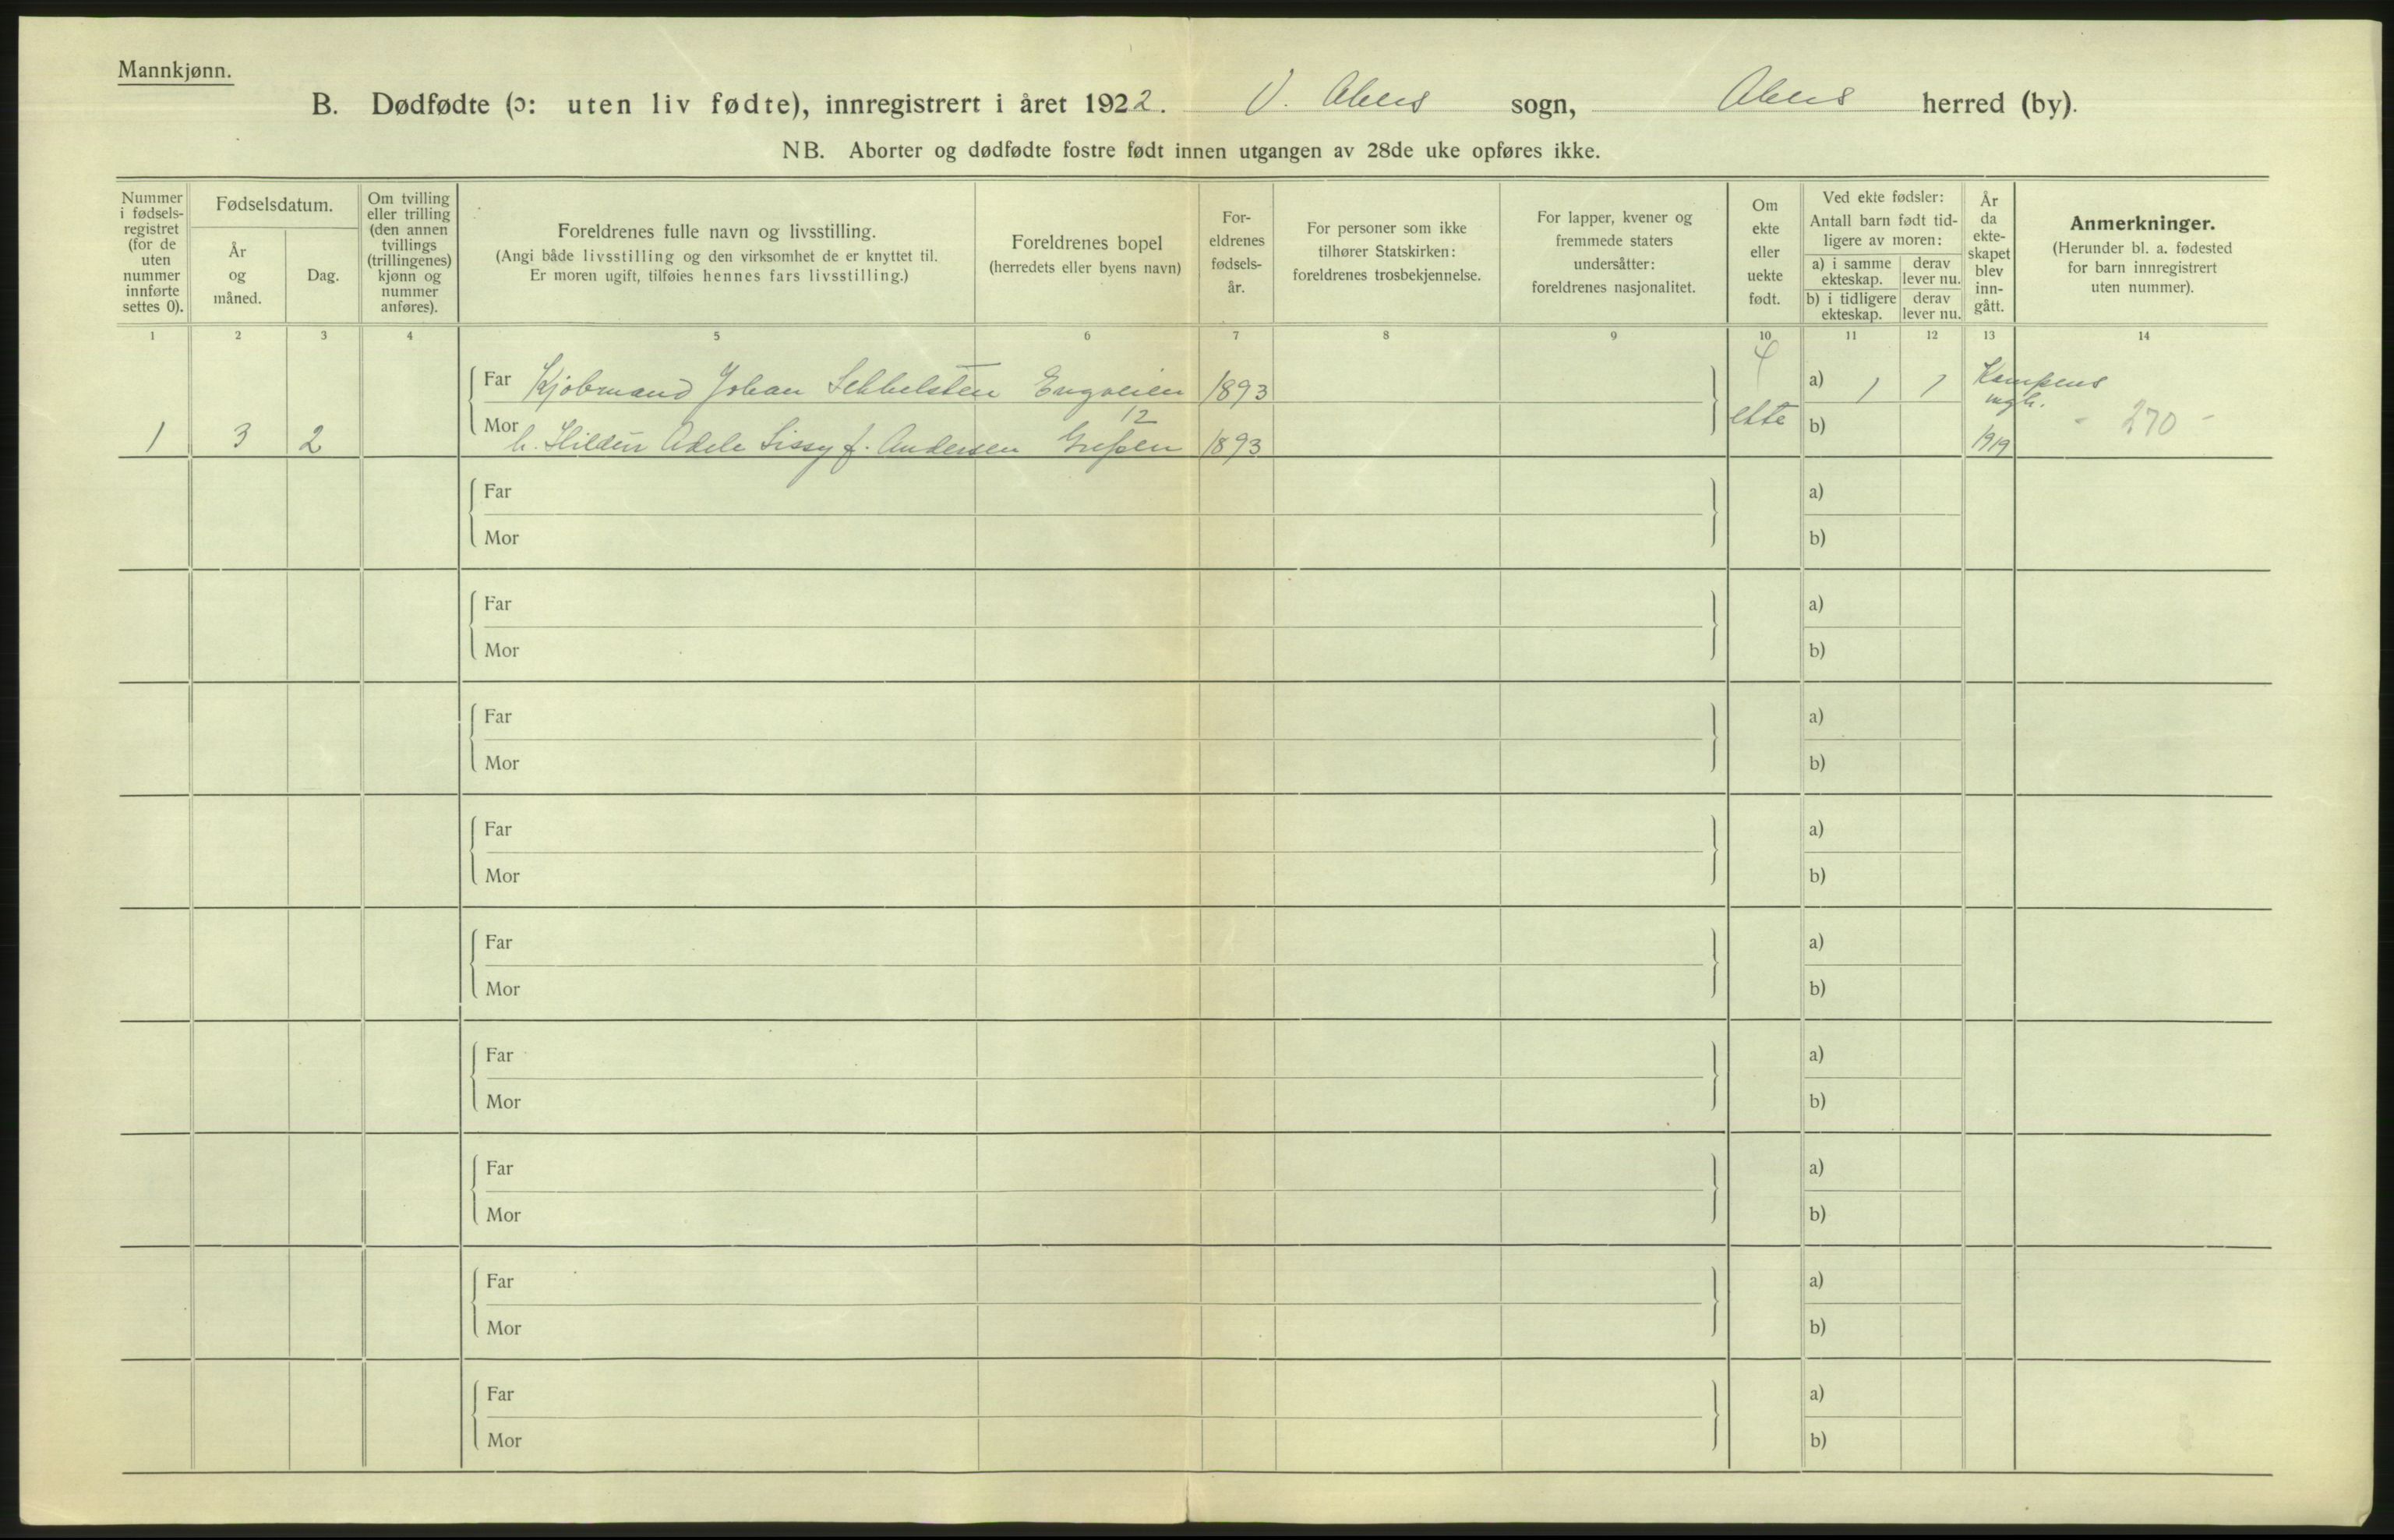 Mannkjønn.
B. Dødfødte (ɔ: uten liv fødte), innregistrert i året 1922. V. Akers sogn, Akers herred (by).
NB. Aborter og dødfødte fostre født innen utgangen av 28de uke opføres ikke.
Nummer
i fødsels-
registret
(for de
uten
nummer
innførte
settes 0).
Fødselsdatum.
År
og
måned.
Dag.
Om tvilling
eller trilling
(den annen
tvillings
(trillingenes)
kjønn og
nummer
anføres).
Foreldrenes fulle navn og livsstilling.
(Angi både livsstilling og den virksomhet de er knyttet til.
Er moren ugift, tilføies hennes fars livsstilling.)
Foreldrenes bopel
(herredets eller byens navn)
For-
eldrenes
fødsels-
år.
For personer som ikke
tilhører Statskirken:
foreldrenes trosbekjennelse.
For lapper, kvener og
fremmede staters
undersåtter:
foreldrenes nasjonalitet.
Om
ekte
eller
uekte
født.
Ved ekte fødsler:
Antall barn født tid-
ligere av moren:
a) i samme
ekteskap.
derav
lever nu.
b) i tidligere
ekteskap.
derav
lever nu.
År
da
ekte-
skapet
blev
inn-
gått.
Anmerkninger.
(Herunder bl. a. fødested
for barn innregistrert
uten nummer).
1 2 3 4 5 6 7 8 9 10 11 12 13 14
Far Kjøbmand Johan Engveien 1893 a) 1 1 Kampens
mgh.
12
1 3 2 Mor h. Hildur Adele Sissy f. Andersen Grefsen 1893 ekte b) 1919 - 270 -
Far a)
Mor b)
Far a)
Mor b)
Far a)
Mor b)
Far a)
Mor b)
Far a)
Mor b)
Far a)
Mor b)
Far a)
Mor b)
Far a)
Mor b)
Far a)
Mor b)